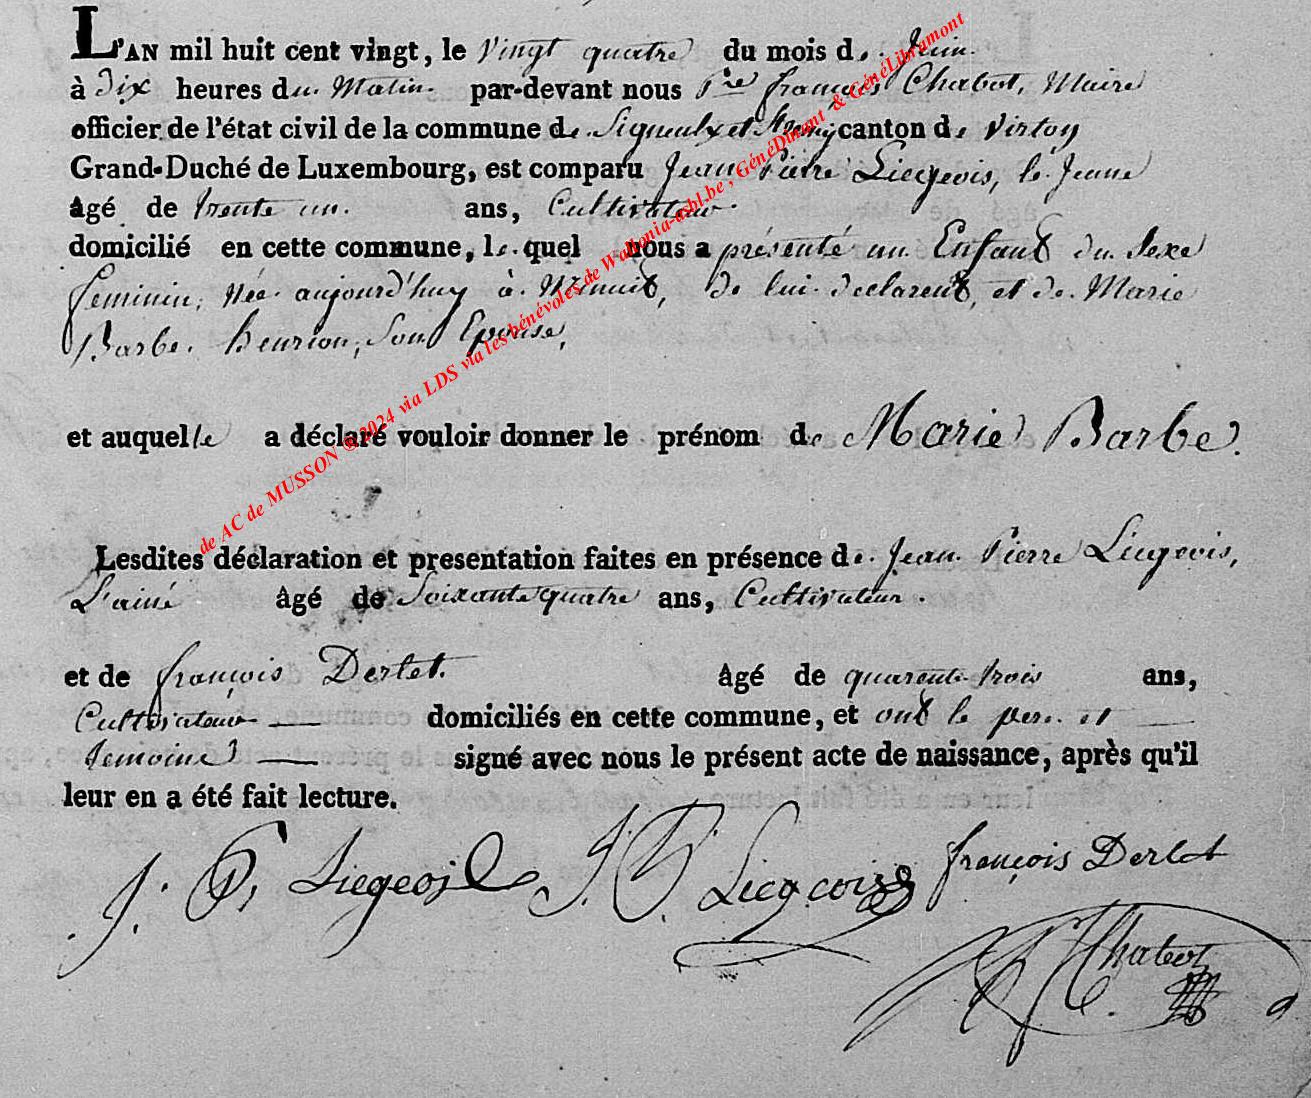 L'AN mil huit cent vingt, le Vingt quatre du mois de Juin
à Dix heures du Matin par-devant nous Pre françois Chabot, Maire
officier de l'état civil de la commune de Signeulx et canton de Virton
Grand-Duché de Luxembourg, est comparu Jean Pierre Liegeois, le Jeune
âgé de trente un ans, Cultivateur
domicilié en cette commune, lequel nous a présenté un Enfant du Sexe
feminin, Née aujourd'huy à Minuit, de lui declarent, et de Marie
Barbe henrion, Son Epouse,
et auquelle a déclaré vouloir donner le prénom de Marie Barbe.
Lesdites déclaration et presentation faites en présence de Jean Pierre Liegeois,
L'ainé âgé de Soixante quatre ans, Cultivateur.
et de françois Derlet. âgé de quarente trois ans,
Cultivateur — domiciliés en cette commune, et ont le pere et —
temoins — signé avec nous le présent acte de naissance, après qu'il
leur en a été fait lecture.
J. P. Liegeois J. P. Liegeois françois Derlet
Chabot
de AC de MUSSON ©2024 via LDS via les bénévoles de Wallonia-asbl.be, GénéDinant & GénéLibramont